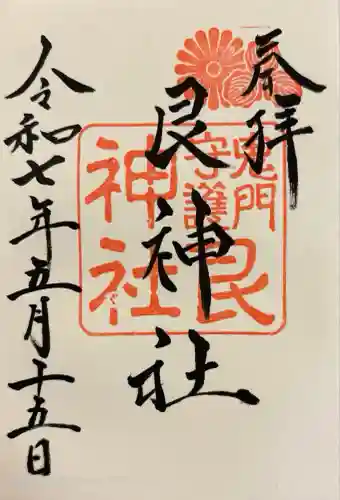 奉拝
鬼門
守護
艮
神社
艮神社
令和七年五月十五日